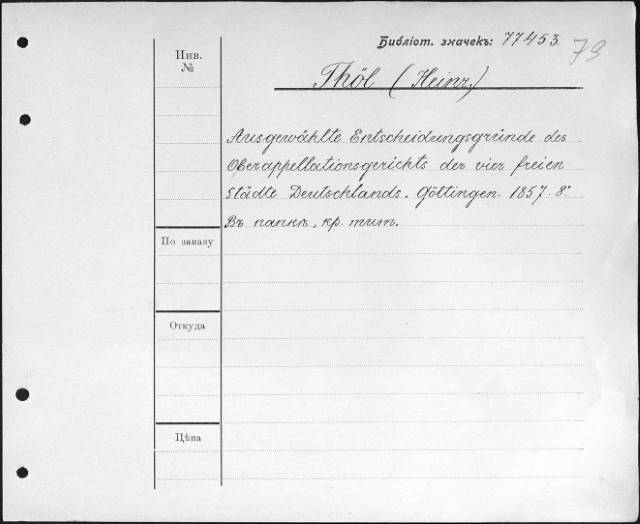 Библіот. значекъ: 77453. 79
Инв. №
Thöl (Heinr.)
Ausgewählte Entscheidungsgründe des
Oberappellationsgerichts der vier freien
Städte Deutschlands. Göttingen. 1857. 8°.
Въ папкѣ, кр. тит.
По заказу
Откуда
Цѣна